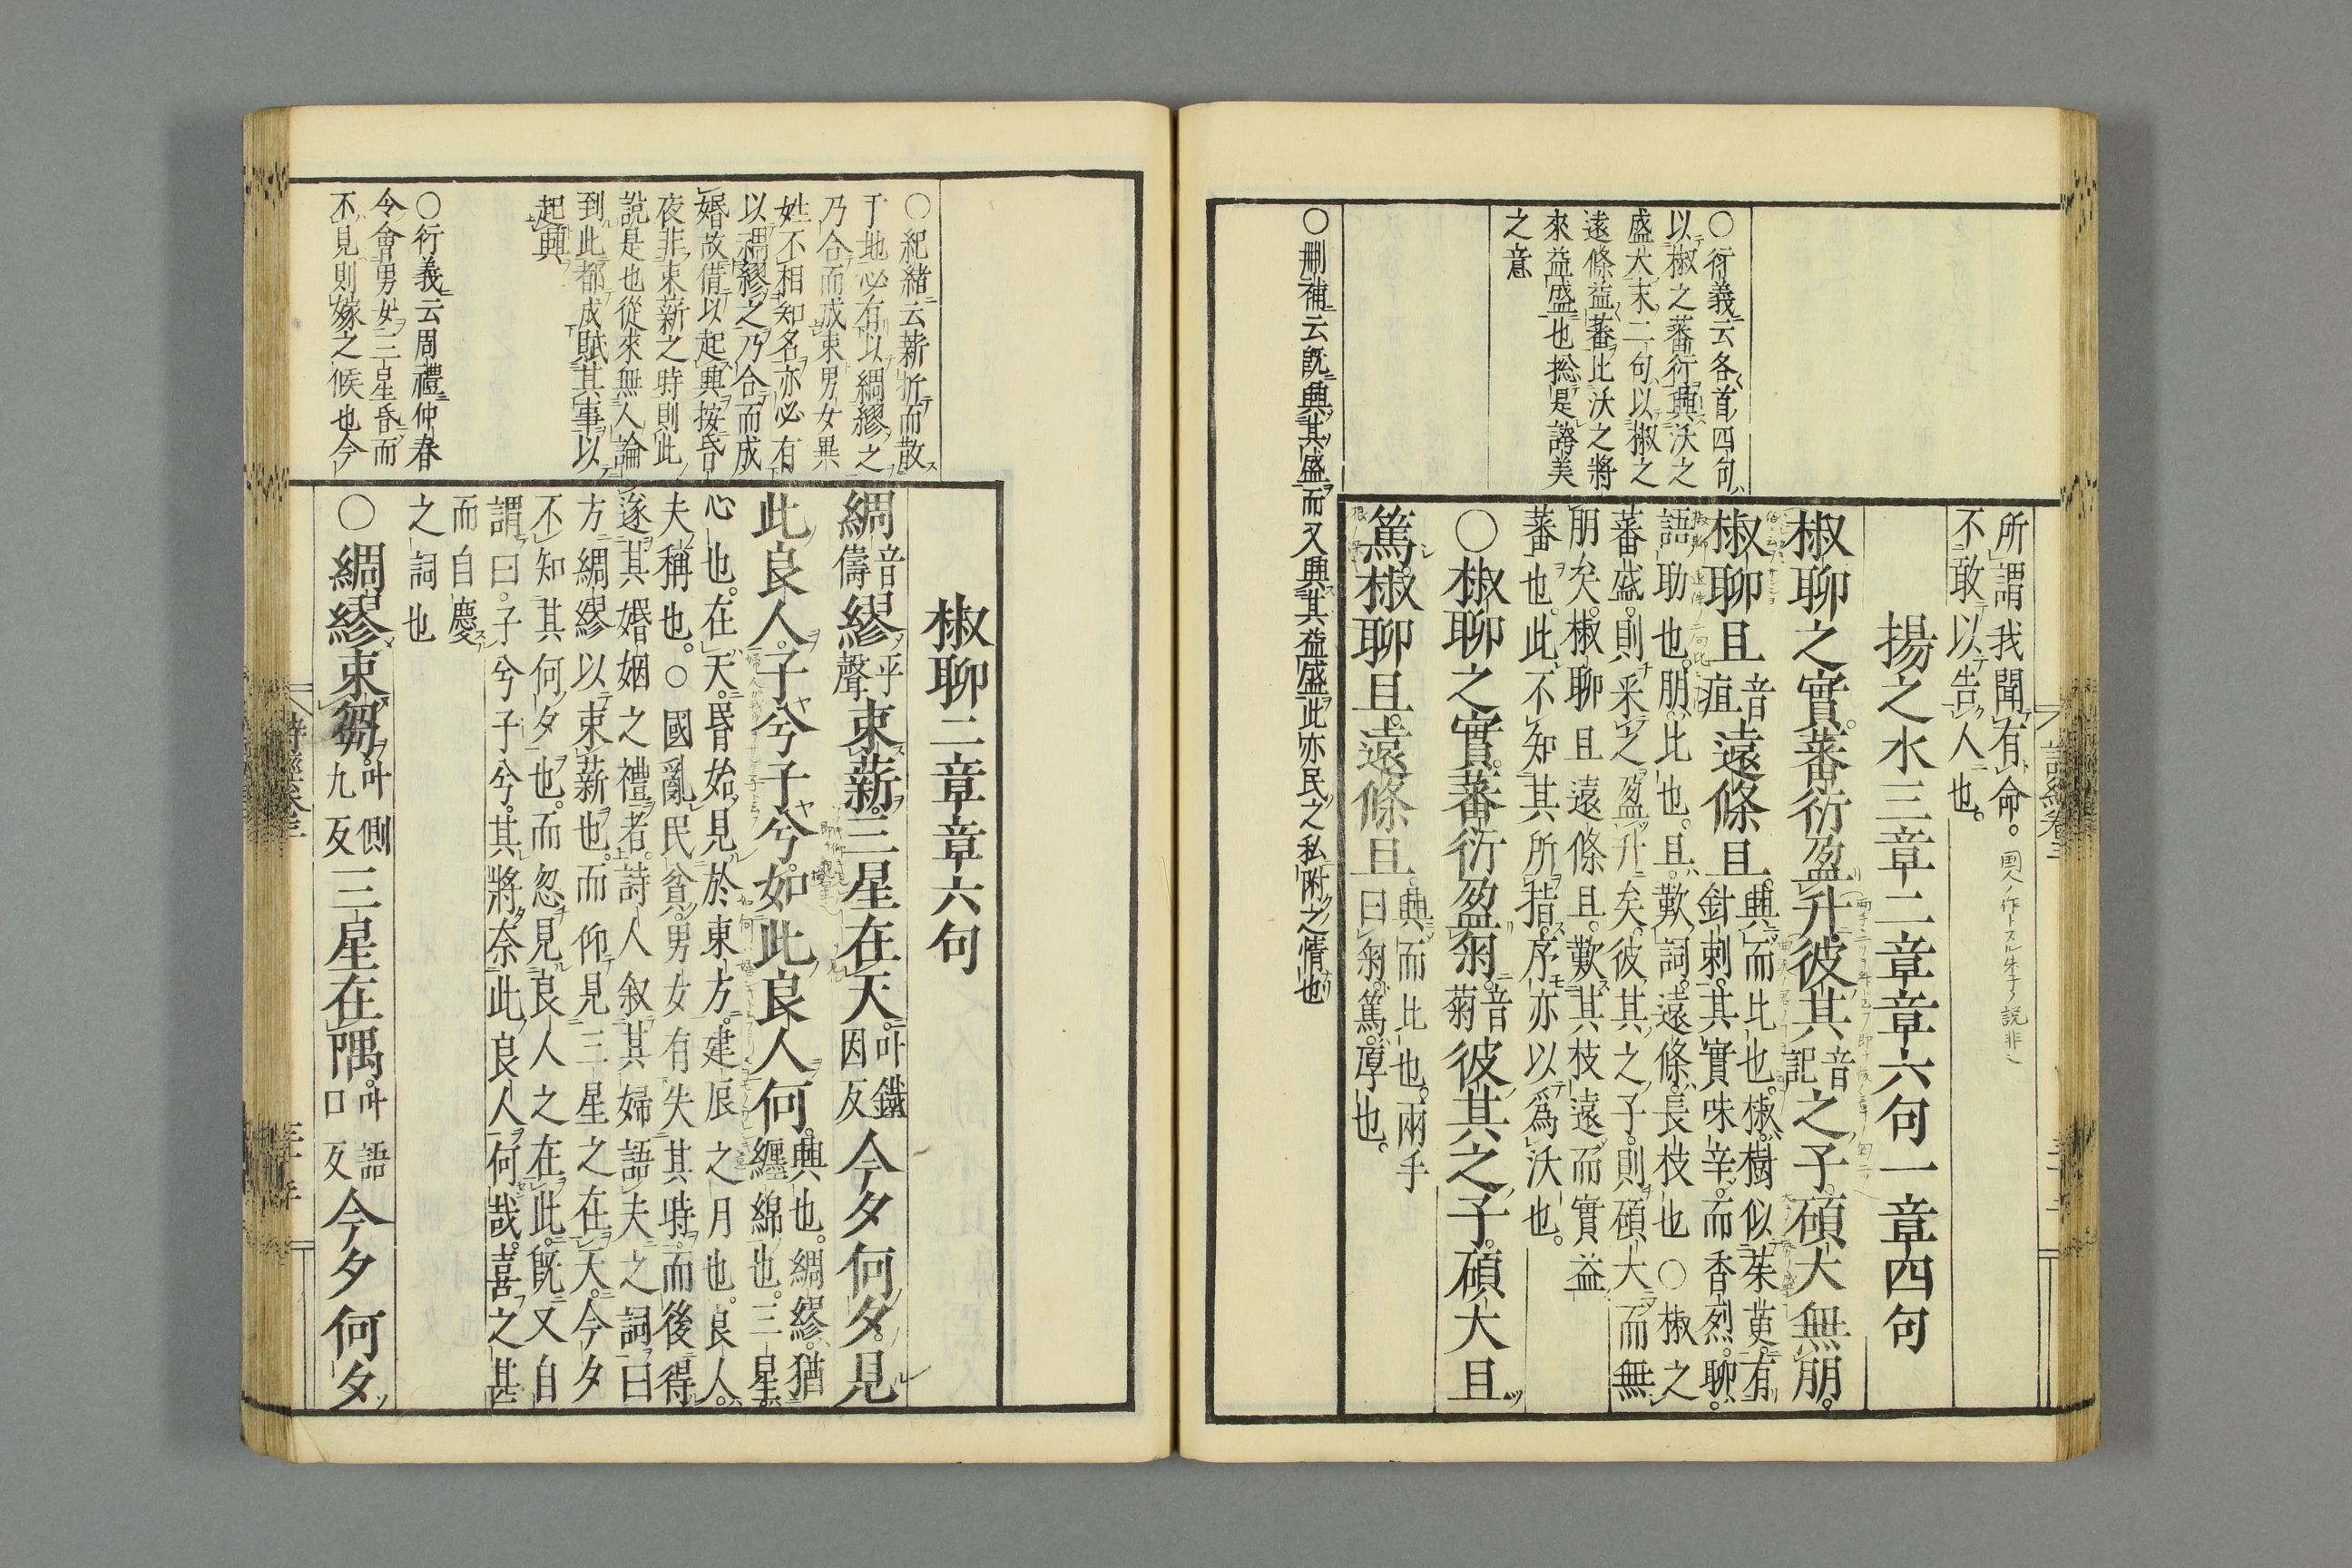 ○衍義云各首四句
以椒之蕃衍興沃之
盛大末二句以椒之
遠條益蕃比沃之將
來益盛也捴是誇美
之意
所謂我聞有命。
不敢以告人也。
揚之水三章二章章六句一章四句
椒聊之實。蕃衍盈升。彼其音記之子。碩大無朋。
椒聊且音疽遠條且。興而比也。椒。樹似茱萸。有針刺。其實味辛。而香烈。聊。
語助也。朋。比也。且。歎詞。遠條。長枝也○椒之
蕃盛。則采之盈升矣。彼其之子。則碩大而無
朋矣。椒聊且遠條且。歎其枝遠而實益
蕃也。此不知其所指。序亦以爲沃也。
○椒聊之實。蕃衍盈匊。音菊彼其之子。碩大且
篤。椒聊且。遠條且。興而比也。兩手曰匊。篤。厚也。
○刪補云既興其盛而又興其益盛此亦民之私附之情也
○紀緒云薪析而散
于地必有以綢繆之
乃合而成束男女異
姓不相知名亦必有
以綢繆之乃合而成
婚故借以起興按昏
夜非束薪之時則此
說是也從來無人論
到此都成賦其事以
起興
○衍義云周禮仲春
令會男女三星昏而
不見則嫁之候也今
椒聊二章章六句
綢音儔繆平聲束薪。三星在天。叶鐵因反今夕何夕。見
此良人。子兮子兮。如此良人何。興也。綢繆。猶纏綿也。三星。
心也。在天。昏始見於東方。建辰之月也。良人。
夫稱也。○國亂民貧。男女有失其時。而後得
遂其婚姻之禮者。詩人叙其婦語夫之詞曰
方綢繆以束薪也。而仰見三星之在天。今夕
不知其何夕也。而忽見良人之在此。既又自
謂曰。子兮子兮。其將奈此良人何哉。喜之甚
而自慶
之詞也
○綢繆束芻。叶側九反三星在隅。叶語口反今夕何夕